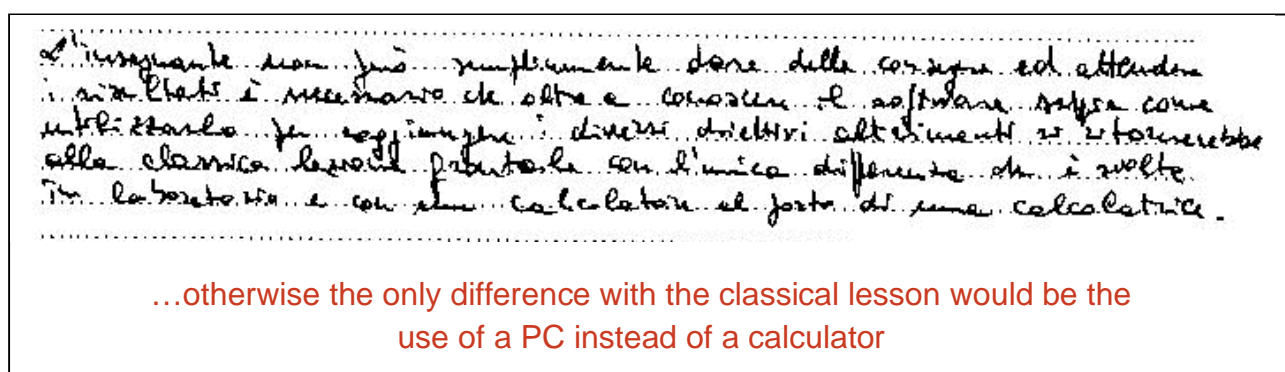 L'insegnante non può semplicemente dare delle consegne ed attendere
i risultati è necessario che oltre a conoscere il software sappia come
utilizzarlo per raggiungere i diversi obiettivi altrimenti si ritornerebbe
alla classica lezione frontale con l'unica differenza che è svolta
in laboratorio e con un calcolatore al posto di una calcolatrice.
…otherwise the only difference with the classical lesson would be the
use of a PC instead of a calculator